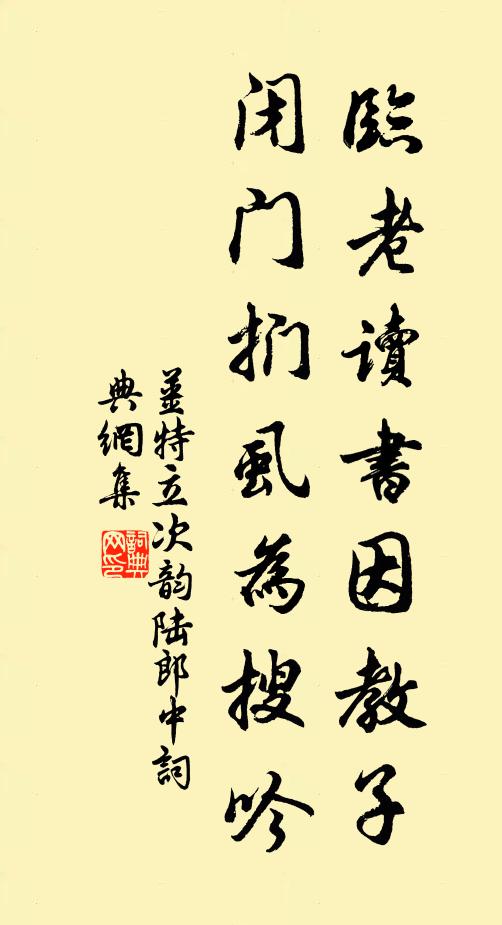 臨老讀書因教子
閉門捫虱為搜吟
薑特立次韵陆郎中詞
典網集
詞典
网印